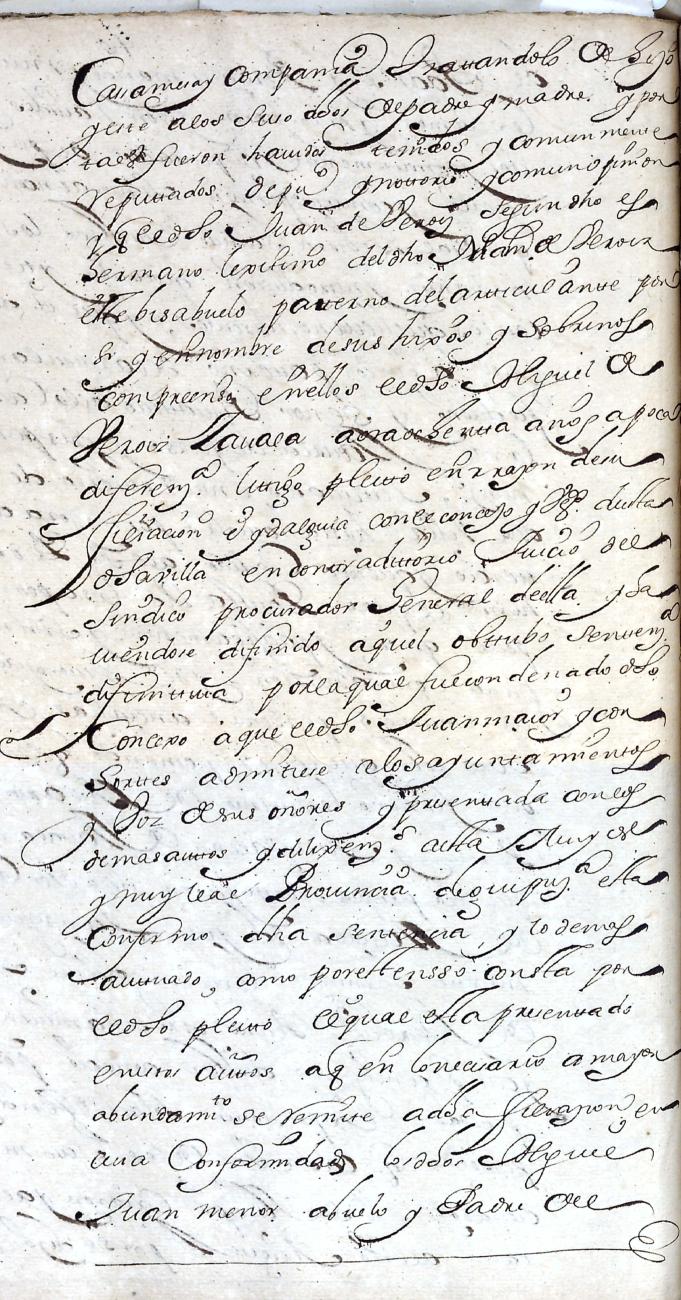 Casamiº y compania tratandolos de hijo
y este a los suso dhos de padre y madre y por
tales fueron havidos tenidos y comunmente
reputados de pu.co y nottorio y comun opinion
y q el dho Juan de Beroiz segun dho es
hermano lexitimo del dho Juan de Beroiz
este bisabuelo patterno del articulante por
si y en nombre de sus hixos y sobrinos
compreendº en ellos el dho Miguel de
Beroiz Zavala avra ochentta años a poca
diferenz.a littigo pleitto en razon de su
filiacion e ydalguia con el concejo y dha
dha villa en contradictorio Juicio del
Sindico procurador General de ella y ha
viendose difinido aquel obttubo sentenz.a
difinittiva por la qual fue condenado dho
Concexo a que el dho Juan maior y con
sortes admitiese a los ayuntamientos
y Goz de sus onores y presentada con los
demas auttos y dilixenz.s a esta Muy N
y muy leal Provincia de guipuz.a esta
Confirmo dha sentencia, y lo demas
auttuado, como por esttensso constta por
el dho pleitto el qual esta presentado
en esttos auttos a q en lo necesario a mayor
abundami.to se remitte a dha filiazion en
cuia Conformidad los dhos Miguel
Juan menor abuelo y Padre del